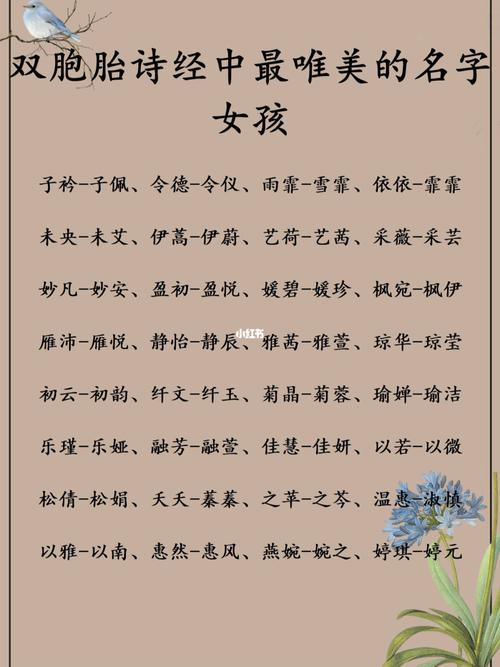 双胞胎诗经中最唯美的名字
女孩
子衿-子佩、令德-令仪、雨霏-雪霏、依依-霏霏
未央-未艾、伊蒿-伊蔚、艺荷-艺茜、采薇-采芸
妙凡-妙安、盈初-盈悦、媛碧-媛珍、枫宛-枫伊
小红书
雁沛-雁悦、静怡-静辰、雅茜-雅萱、琼华-琼莹
初云-初韵、纤文-纤玉、菊晶-菊蓉、瑜婵-瑜洁
乐瑾-乐娅、融芳-融萱、佳慧-佳妍、以若-以微
松倩-松娟、夭夭-蓁蓁、之苹-之芩、温惠-淑慎
以雅-以南、惠然-惠风、燕婉-婉之、婷琪-婷元